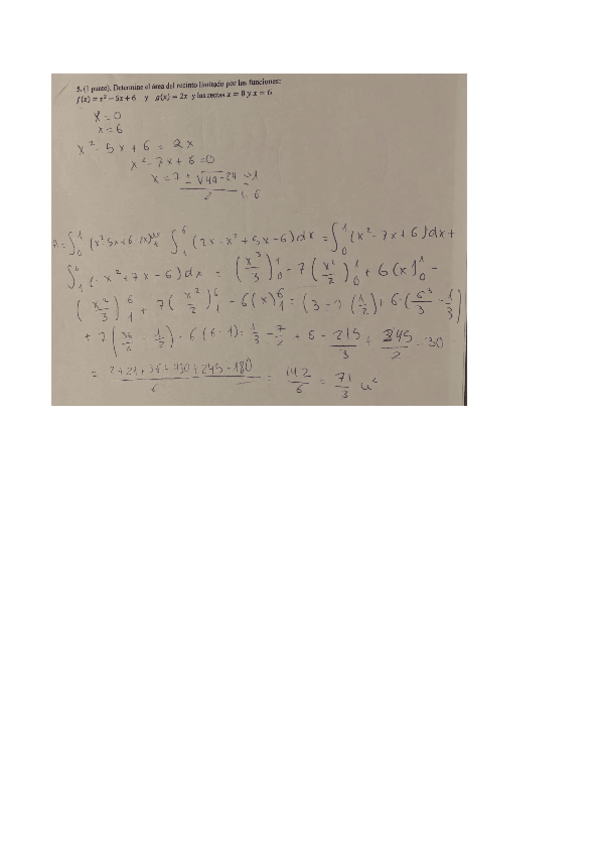 5. (1 punto). Determine el área del recinto limitado por las funciones:
f(x) = x² − 5x + 6 y g(x) = 2x y las rectas x = 0 y x = 6
x = 0
x = 6
x² - 5x + 6 = 2x
x² - 7x + 6 = 0
x = 7 ± √49-24
2
A = ∫₀¹ (x² 5x+6 ∫₁⁶ (2x - x² + 5x - 6) dx = ∫₀¹ (x² - 7x + 6) dx +
∫₁⁶ (- x² + 7x - 6) dx = (x³/3)₀¹ - 7 (x²/2)₀¹ + 6 (x)₀¹ -
)₁⁶ + 7 (x²/2)₁⁶ - 6 (x)₁⁶ = (1/2) + 6 · (6³/3 - 1/3)
+ 7 (36/2 - 1/2) - 6 (6 - 1) = 1/3 - 7/2 + 6 - 215/3 + 245/2 - 30
= 2+21+36 +245-180 / 6 = 142/6 = 71/3 u²